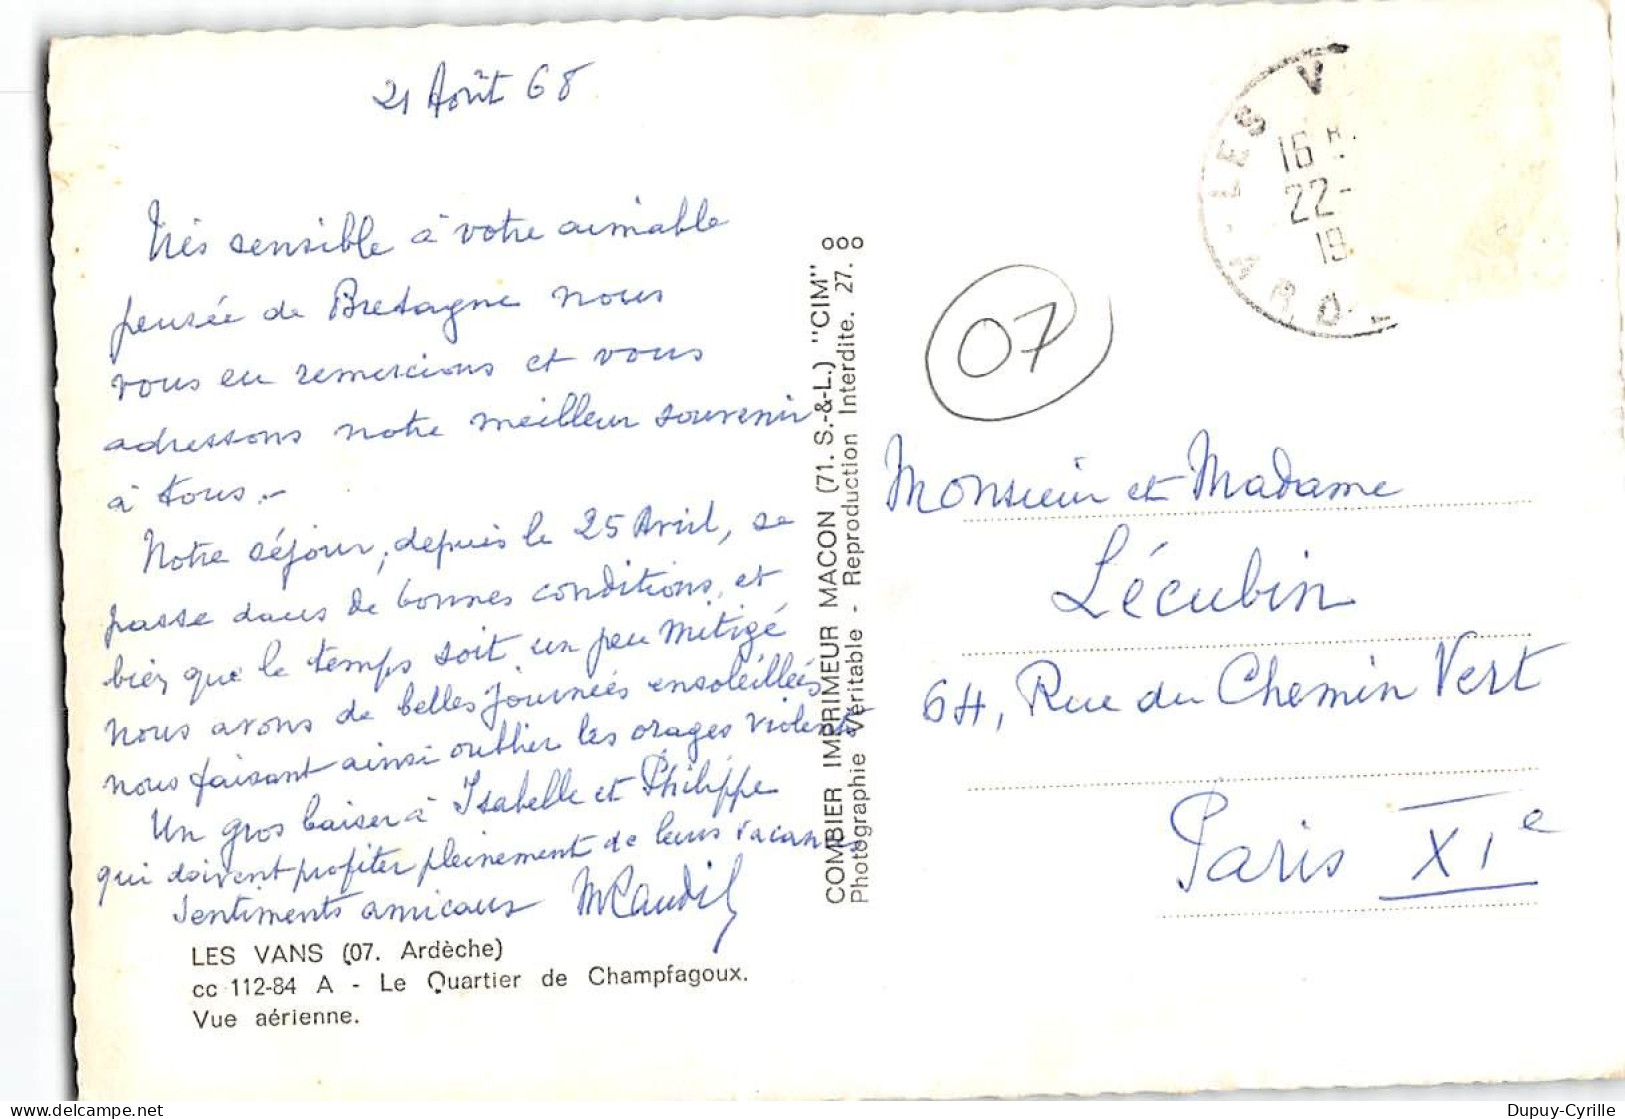 21 Août 68
Très sensible à votre aimable
pensée de Bretagne nous
vous en remercions et vous
adressons notre meilleur souvenir
à tous.-
Notre séjour, depuis le 25 Avril, se
passe dans de bonnes conditions, et
bien que le temps soit un peu mitigé
nous avons de belles journées ensoleillées
nous faisant ainsi oublier les orages violents
Un gros baiser à Isabelle et Philippe
qui doivent profiter pleinement de leurs vacances
Sentiments amicaux
LES VANS (07. Ardèche)
cc 112-84 A - Le Quartier de Champfagoux.
Vue aérienne.
COMBIER IMPRIMEUR MACON (71. S.-&-L.) "CIM"
Photographie Véritable - Reproduction Interdite. 27.
LES V
16 H
22-
19
07
Monsieur et Madame
Lécubin
64, Rue du Chemin Vert
Paris XIe
Dupuy-Cyrille